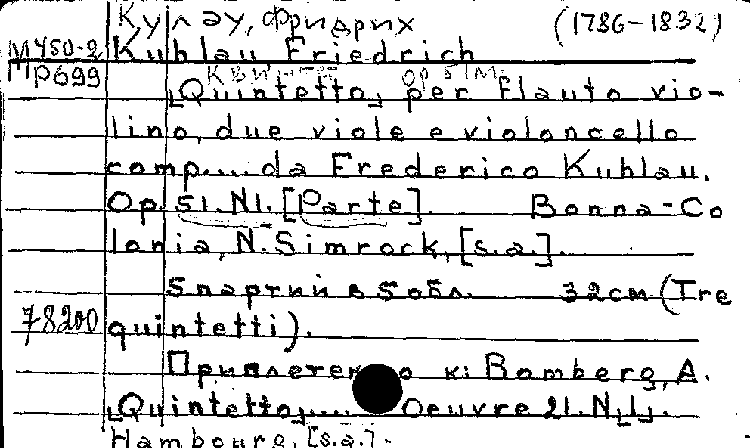 Кулау, Фридрих (1786-1832)
МУ50-2 Kuhlau Friedrich
МР699 квинтет ор 51м.
„Quintetto„ per flauto vio-
lino, due viole e violoncello
comp.... da Frederico Kuhlau.
Op. 51. N1. [Parte] Bonna-Co
lania, N. Simrock, [s.a.].
5 партий в 5 обл. 32 см (Tre
78200 quintetti).
к: Bomberg, A.
„Quintetto„.... Oeuvre 21. N„1„.
Hambourg, [s.a.].